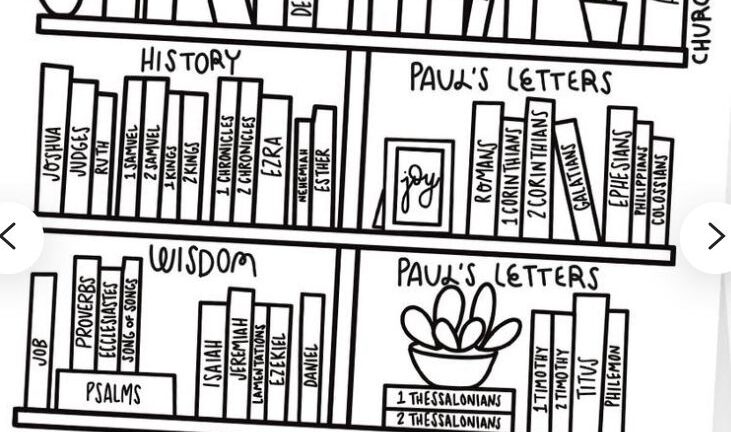 DE
CHURC
HISTORY
JOSHUA
JUDGES
RUTH
1 SAMUEL
2 SAMUEL
1 KINGS
2 KINGS
1 CHRONICLES
2 CHRONICLES
EZRA
NEHEMIAH
ESTHER
PAUL'S LETTERS
joy
ROMANS
1 CORINTHIANS
2 CORINTHIANS
GALATIANS
EPHESIANS
PHILIPPIANS
COLOSSIANS
WISDOM
JOB
PROVERBS
ECCLESIASTES
SONG OF SONGS
PSALMS
ISAIAH
JEREMIAH
LAMENTATIONS
EZEKIEL
DANIEL
PAUL'S LETTERS
1 THESSALONIANS
2 THESSALONIANS
1 TIMOTHY
2 TIMOTHY
TITUS
PHILEMON